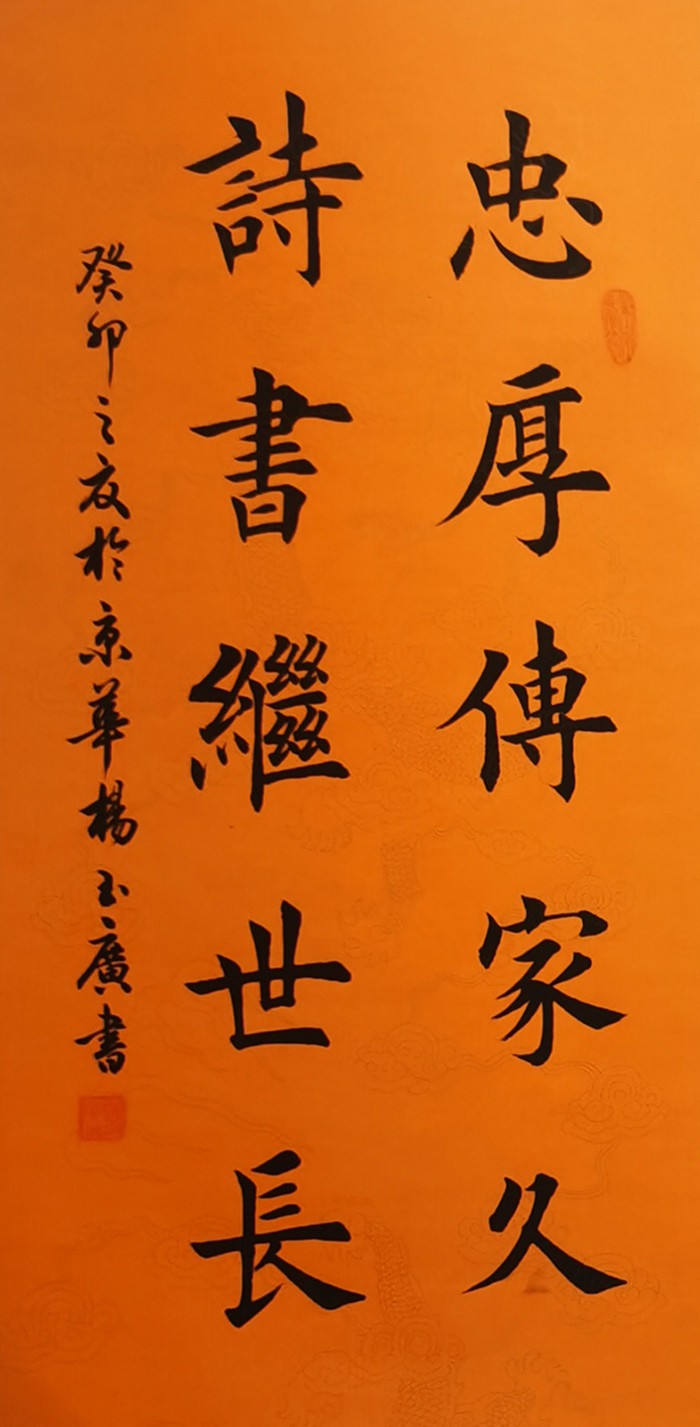 忠厚傳家久
詩書繼世長
癸卯之夏於京華楊玉廣書